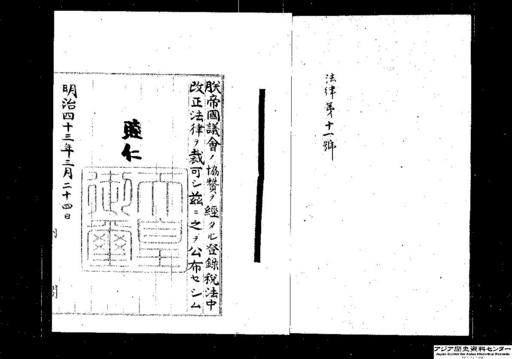 法律第十一號
朕帝國議會ノ協贊ヲ經タル登錄稅法中
改正法律ヲ裁可シ茲ニ之ヲ公布セシム
睦仁
天皇
御璽
明治四十三年三月二十四日
アジア歴史資料センター
Japan Center for Asian Historical Records